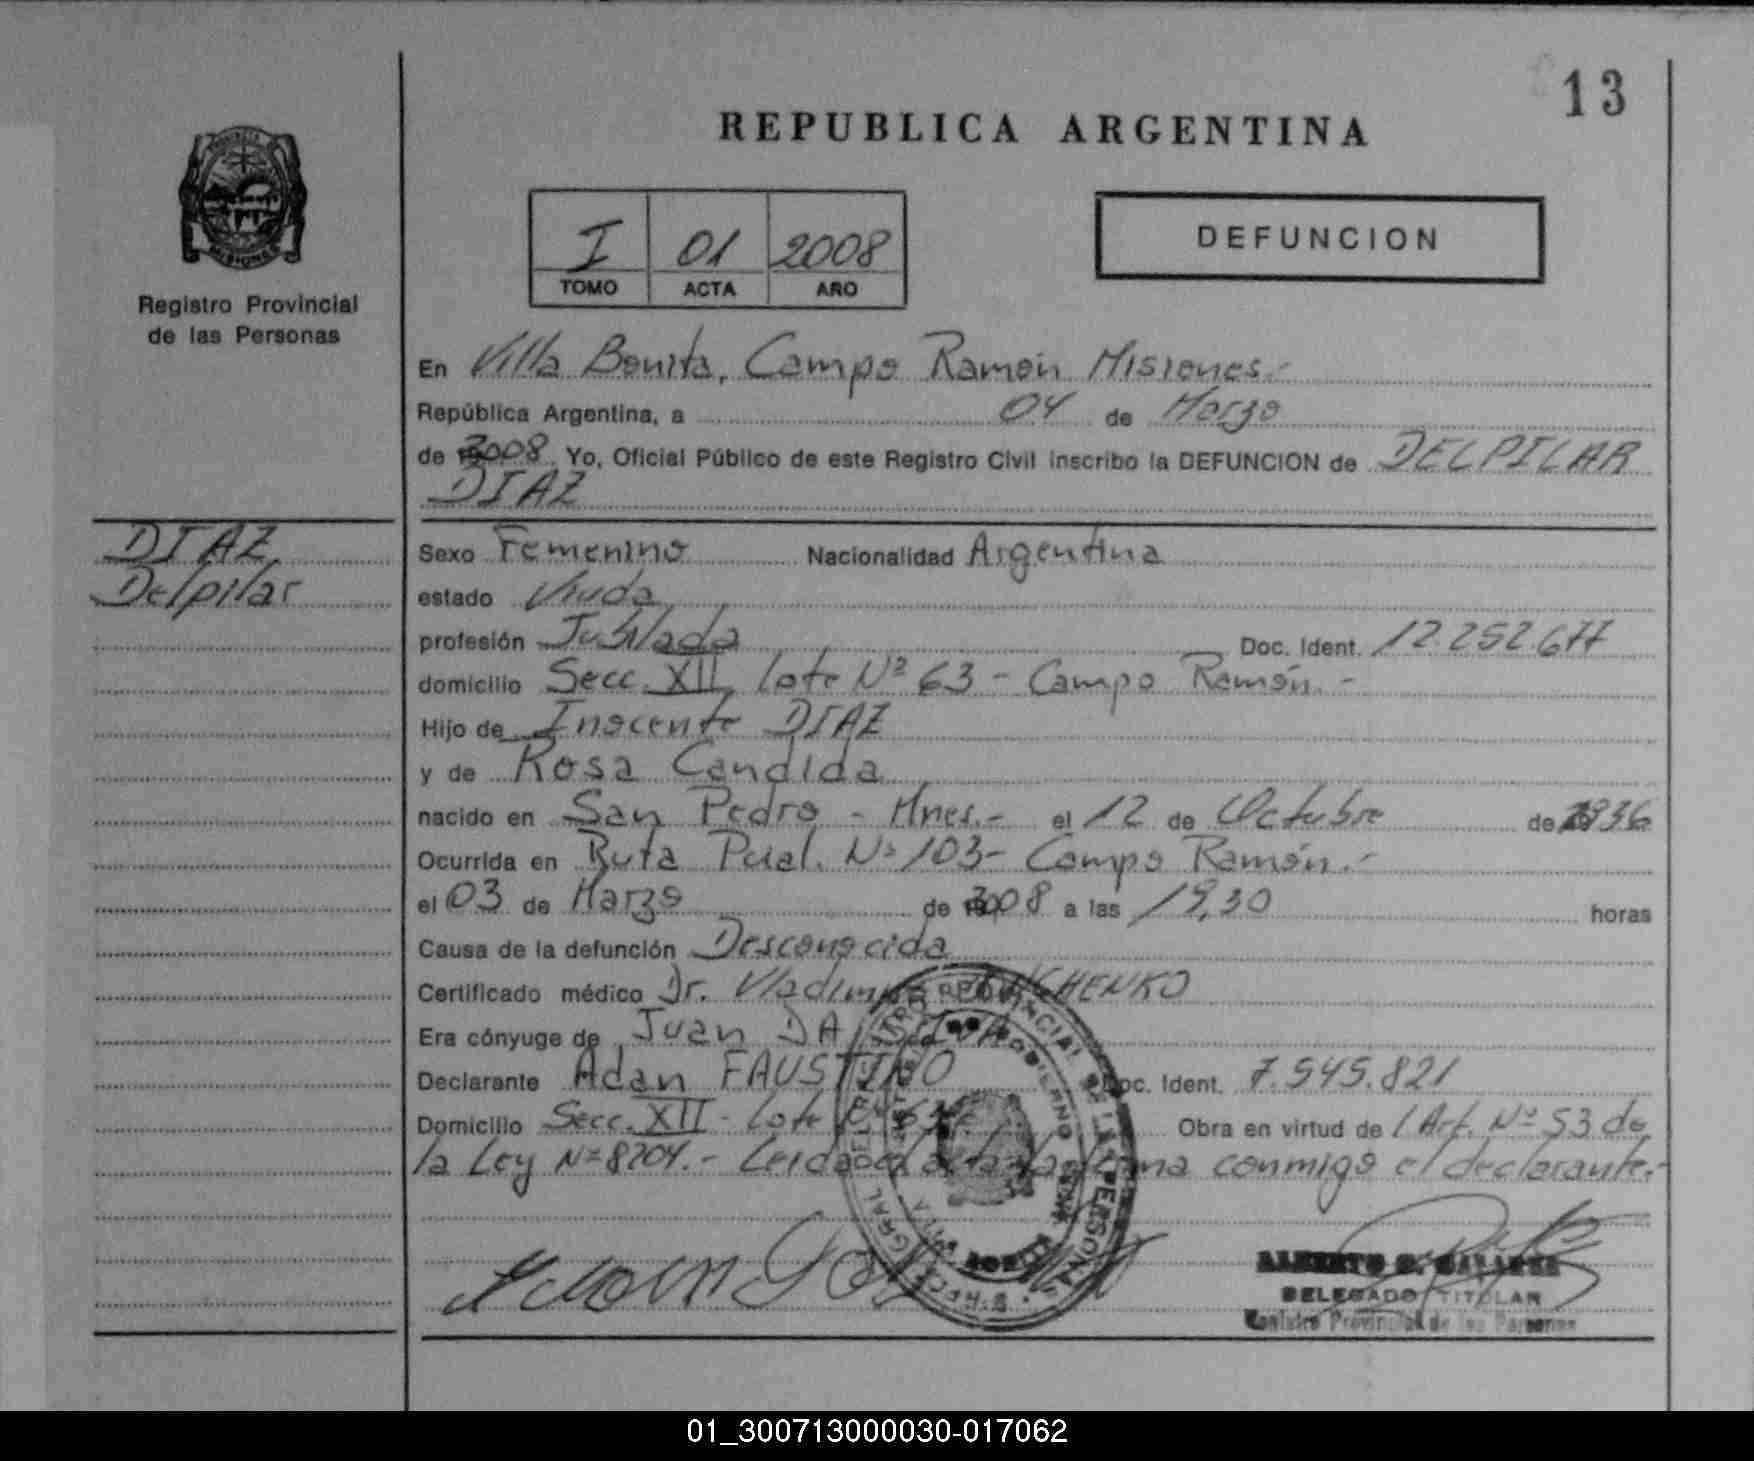 13
REPUBLICA ARGENTINA
PROVINCIA DE
MISIONES
Registro Provincial
de las Personas
I 01 2008
TOMO ACTA AÑO
DEFUNCION
En Villa Bonita, Campo Ramón Misiones.-
República Argentina, a 04 de Marzo
de 2008. Yo, Oficial Público de este Registro Civil inscribo la DEFUNCION de DELPILAR
DIAZ
DIAZ
Delpilar
Sexo Femenino Nacionalidad Argentina
estado Viuda
profesión Jubilada Doc. Ident. 12.252.677
domicilio Secc. XII, Lote Nº 63 - Campo Ramón.-
Hijo de Inocente DIAZ
y de Rosa Candida
nacido en San Pedro - Mnes.- el 12 de Octubre de 1936
Ocurrida en Ruta Pcial. Nº 103- Campo Ramón.-
el 03 de Marzo de 2008 a las 19,30 horas
Causa de la defunción Desconocida
Certificado médico Dr. Vladimir
Era cónyuge de Juan DA SILVA
Declarante Adan FAUSTINO Doc. Ident. 7.545.821
Domicilio Secc. XII - Lote 63 Obra en virtud de l Art. Nº 53 de
la Ley Nº 8204.- Leida el acta la firma conmigo el declarante.-
DELEGADO TITULAR
Registro Provincial de las Personas
01_300713000030-017062